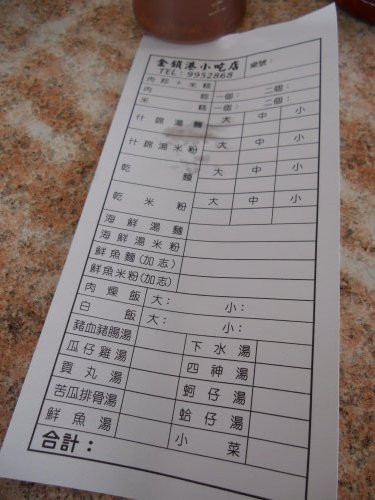 金鎖港小吃店 桌號:
TEL:9952868
肉粽+米糕
肉粽 一個: 二個:
米糕 一個: 二個:
什錦湯麵 大 中 小
什錦湯米粉 大 中 小
乾麵 大 中 小
乾米粉 大 中 小
海鮮湯麵
海鮮湯米粉
鮮魚麵(加志)
鮮魚米粉(加志)
肉燥飯 大: 小:
白飯 大: 小:
豬血豬腸湯 下水湯
瓜仔雞湯 四神湯
貢丸湯 蚵仔湯
苦瓜排骨湯 蛤仔湯
鮮魚湯 小菜
合計: